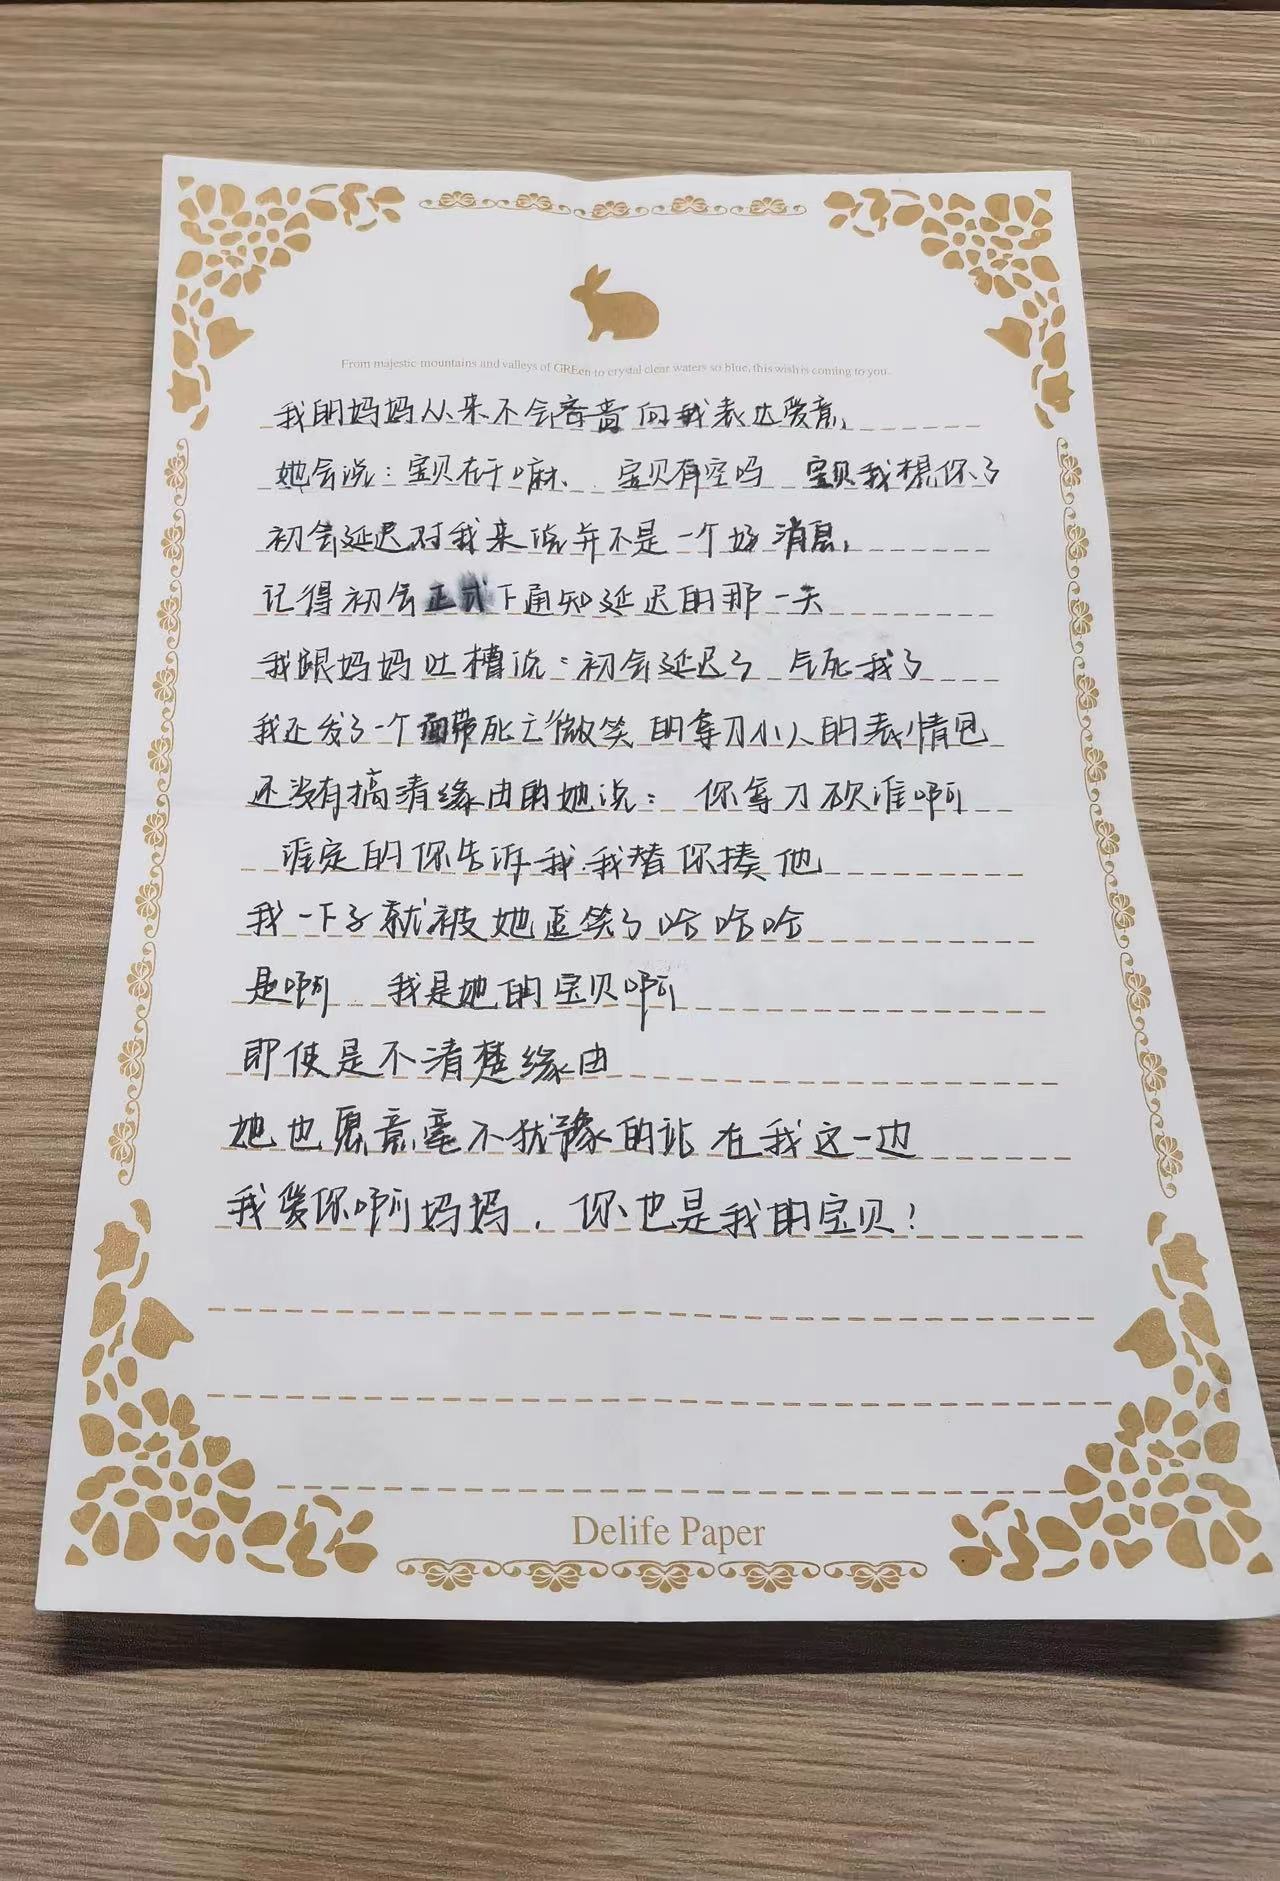 From majestic mountains and valleys of GREen to crystal clear waters so blue, this wish is coming to you.
我的妈妈从来不会吝啬向我表达爱意,
她会说：宝贝在干嘛、宝贝有空吗 宝贝我想你了
初会延迟对我来说并不是一个好消息,
记得初会正式下通知延迟的那一天
我跟妈妈吐槽说：初会延迟了 气死我了
我还发了一个面带死亡微笑的拿刀小人的表情包
还没有搞清缘由的她说： 你拿刀砍谁啊
谁定的你告诉我.我替你揍他
我一下子就被她逗笑了哈哈哈
是啊 我是她的宝贝啊
即使是不清楚缘由
她也愿意毫不犹豫的站在我这一边
我爱你啊妈妈，你也是我的宝贝！
Delife Paper